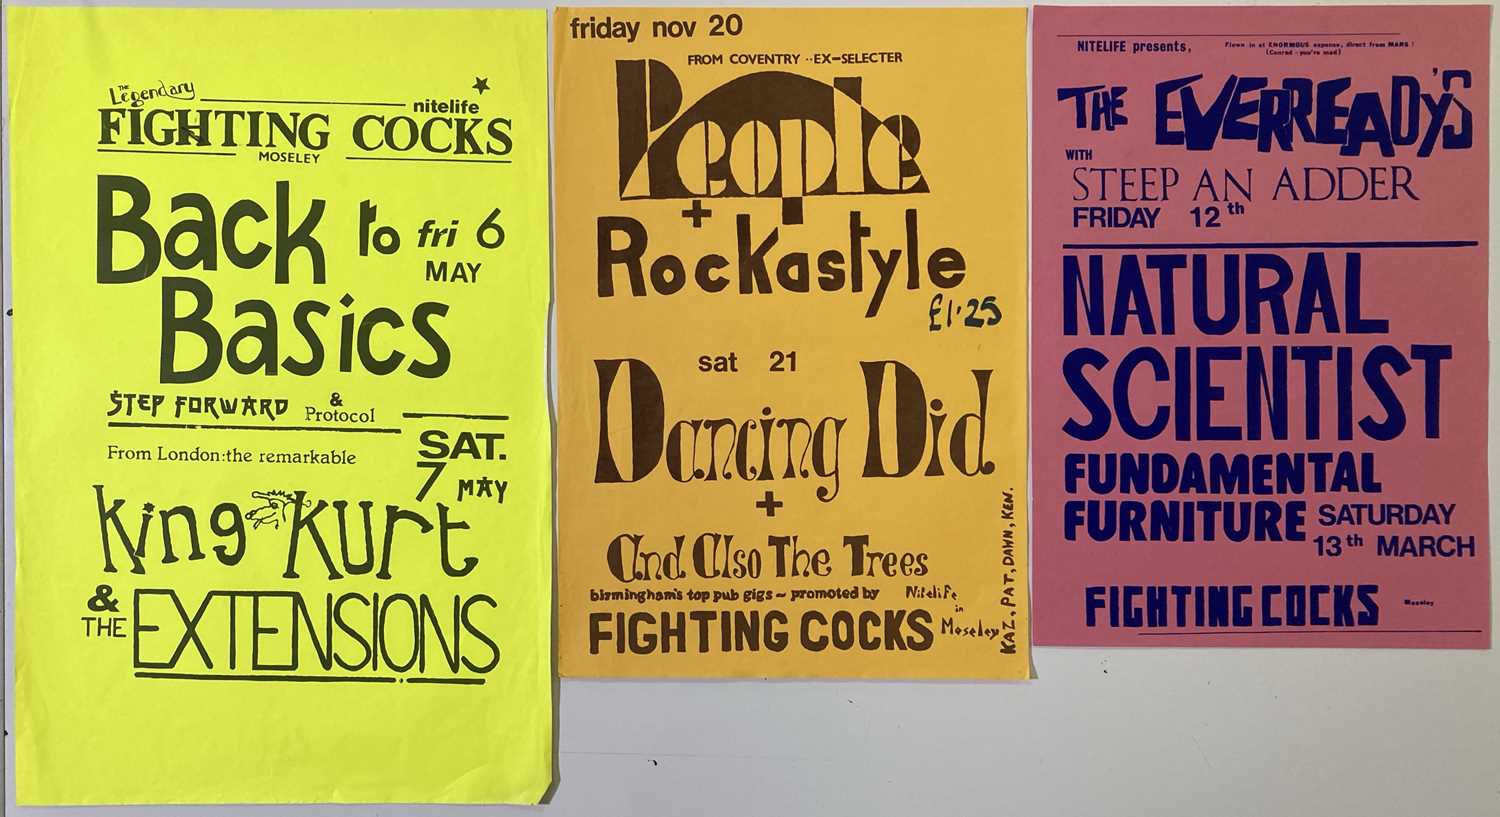 THE
Legendary
nitelife
FIGHTING COCKS
MOSELEY
Back to fri 6
MAY
Basics
STEP FORWARD & Protocol
From London:the remarkable
SAT.
7 MAY
King Kurt
& THE EXTENSIONS
friday nov 20
FROM COVENTRY ··EX-SELECTER
People
+
Rockastyle
£1·25
sat 21
Dancing Did
+
And Also The Trees
birmingham's top pub gigs ~ promoted by Nitelife
in
FIGHTING COCKS Moseley
KAZ, PAT, DAWN, KEN.
NITELIFE presents,
Flown in at ENORMOUS expense, direct from MARS !
(Conrad - you're mad)
THE EVERREADY'S
WITH
STEEP AN ADDER
FRIDAY 12th
NATURAL
SCIENTIST
FUNDAMENTAL
FURNITURE SATURDAY
13th MARCH
FIGHTING COCKS Moseley